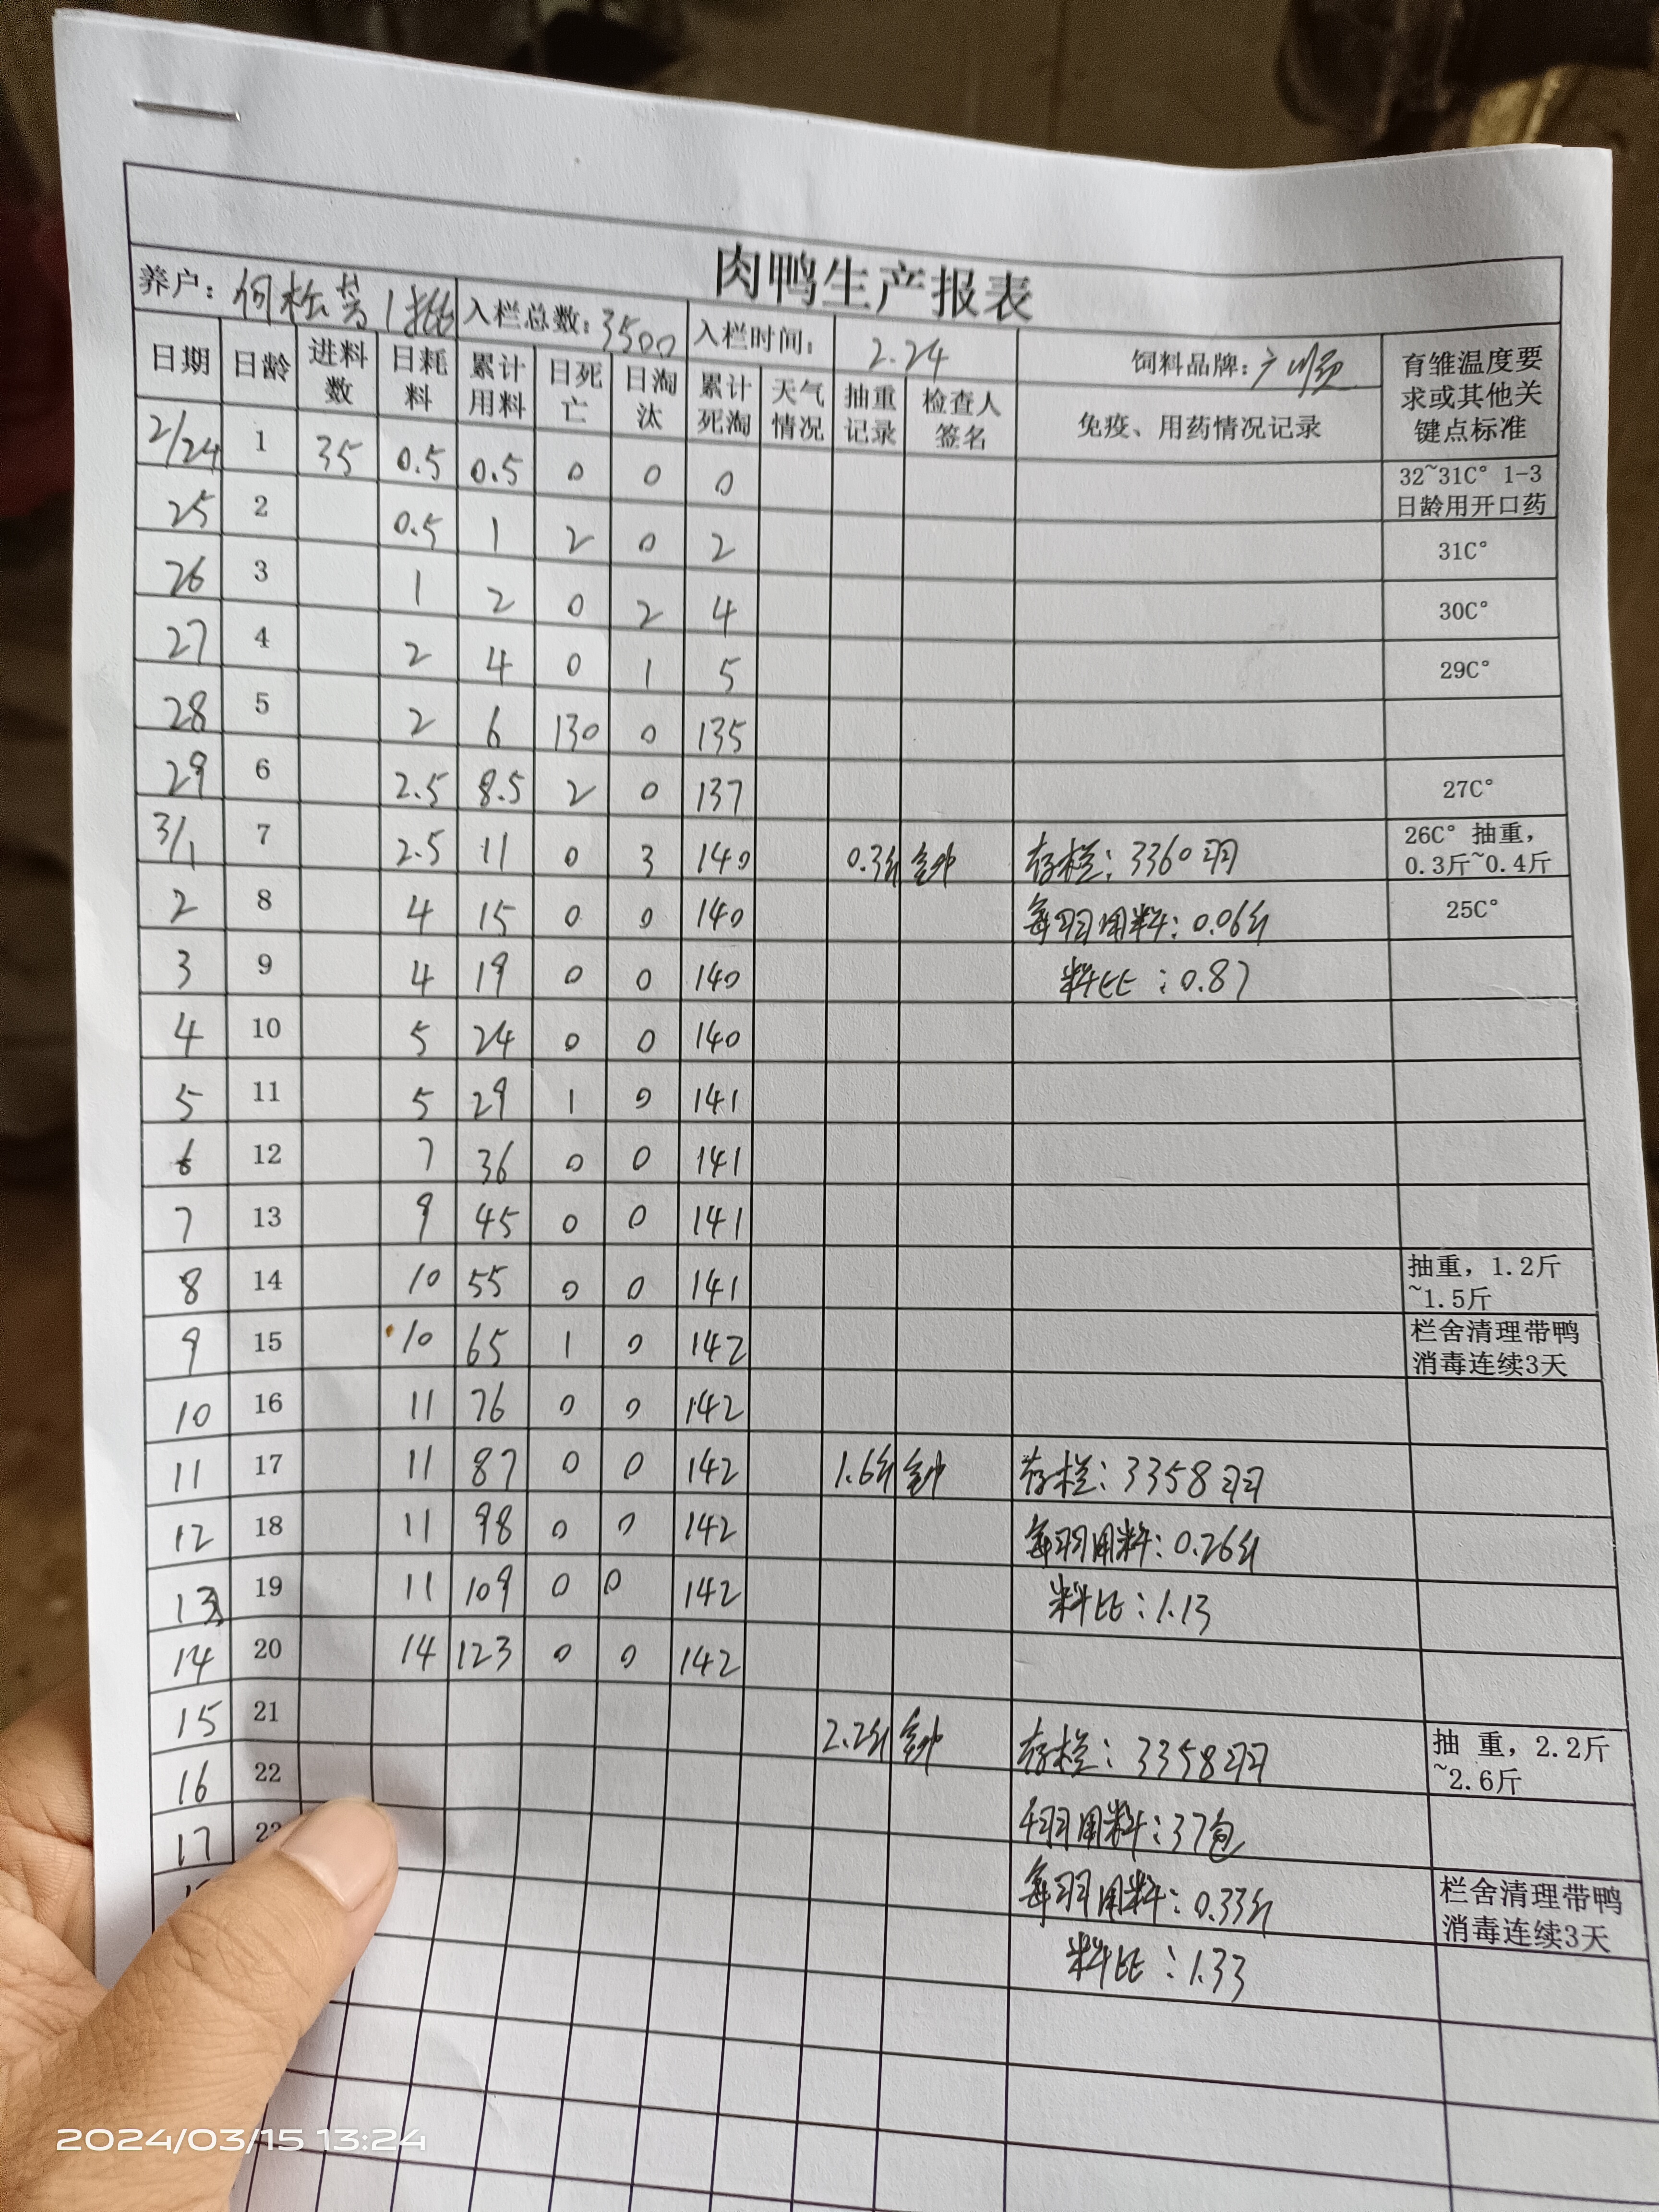 肉鸭生产报表
养户: 何松 1批 入栏总数: 3500 入栏时间: 2.24 饲料品牌: 广顺 育雏温度要求或其他关键点标准
日期 日龄 进料数 日耗料 累计用料 日死亡 日淘汰 累计死淘 天气情况 抽重记录 检查人签名 免疫、用药情况记录
2/24 1 35 0.5 0.5 0 0 0 32~31C° 1-3日龄用开口药
25 2 0.5 1 2 0 2 31C°
26 3 1 2 0 2 4 30C°
27 4 2 4 0 1 5 29C°
28 5 2 6 130 0 135
29 6 2.5 8.5 2 0 137 27C°
3/1 7 2.5 11 0 3 140 0.3斤 存栏: 3360羽 26C° 抽重，0.3斤~0.4斤
2 8 4 15 0 0 140 每羽用料: 0.06 25C°
3 9 4 19 0 0 140 料比: 0.87
4 10 5 24 0 0 140
5 11 5 29 1 0 141
6 12 7 36 0 0 141
7 13 9 45 0 0 141
8 14 10 55 0 0 141 抽重，1.2斤~1.5斤
9 15 10 65 1 0 142 栏舍清理带鸭消毒连续3天
10 16 11 76 0 0 142
11 17 11 87 0 0 142 1.6斤 存栏: 3358羽
12 18 11 98 0 0 142 每羽用料: 0.26
13 19 11 109 0 0 142 料比: 1.13
14 20 14 123 0 0 142
15 21 2.2斤 存栏: 3358羽 抽 重，2.2斤~2.6斤
16 22 千羽用料: 37包
17 每羽用料: 0.33 栏舍清理带鸭消毒连续3天
料比: 1.33
2024/03/15 13:24